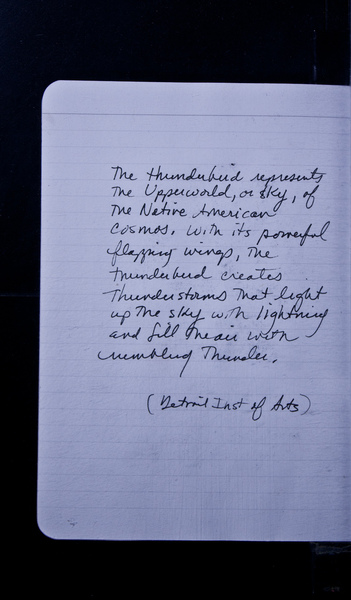 The thunderbird represents
the Upperworld, or sky, of
the Native American
cosmos. With its powerful
flapping wings, the
thunderbird creates
thunderstorms that light
up the sky with lightning
and fill the air with
rumbling thunder.
(Detroit Inst of Arts)